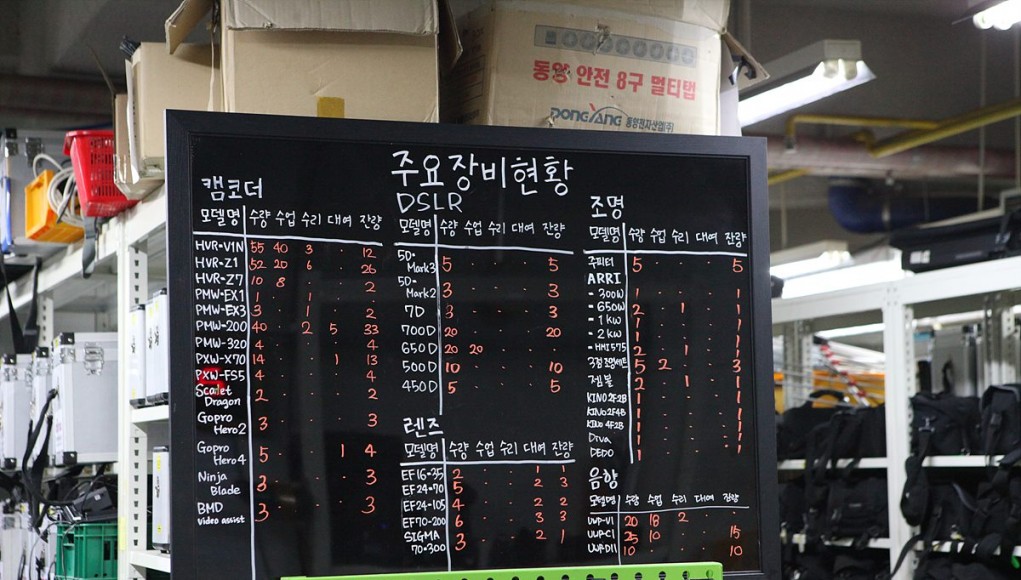 동양 안전 8구 멀티탭
DONGYANG 동양전자산업(주)
주요장비현황
캠코더
모델명 수량 수업 수리 대여 잔량
HVR-V1N 55 40 3 · 12
HVR-Z1 52 20 6 · 26
HVR-Z7 10 8 · · 2
PMW-EX1 1 · 1 · ·
PMW-EX3 3 · 1 · 2
PMW-200 40 · 2 5 33
PMW-320 4 · · · 4
PXW-X70 14 · · 1 13
PXW-FS5 4 · · · 4
Scarlet
Dragon 2 · · · 2
Gopro
Hero2 3 · · · 3
Gopro
Hero4 5 · · 1 4
Ninja
Blade 3 · · · 3
BMD
Video assist 3 · · · 3
DSLR
모델명 수량 수업 수리 대여 잔량
5D-
Mark3 5 · · · 5
5D-
Mark2 3 · · · 3
7D 3 · · · 3
700D 20 · · · 20
650D 20 20 · · ·
500D 10 · · · 10
450D 5 · · · 5
렌즈
모델명 수량 수업 수리 대여 잔량
EF16-35 2 · · 1 1
EF24-70 5 · · 2 3
EF24-105 4 · · 2 2
EF70-200 6 · · 3 3
SIGMA
70-300 3 · · 2 1
조명
모델명 수량 수업 수리 대여 잔량
주피터 5 · · · 5
ARRI
- 300W 1 · · · 1
- 650W 2 · 1 · 1
- 1kw 1 · · · 1
- 2kw 1 · · · 1
- HMI575 2 · 1 · 1
조명세트 5 2 · · 3
2 · 1 · 1
KINO 2F2B 1 · · · 1
KINO 2F4B 1 · · · 1
KINO 4F2B 1 · · · 1
Diva 1 · · · 1
DEDO 1 · · · 1
음향
모델명 수량 수업 수리 대여 잔량
UWP-V1 20 18 2 · ·
UWP-C1 25 10 · · 15
UWP-D11 10 · · · 10